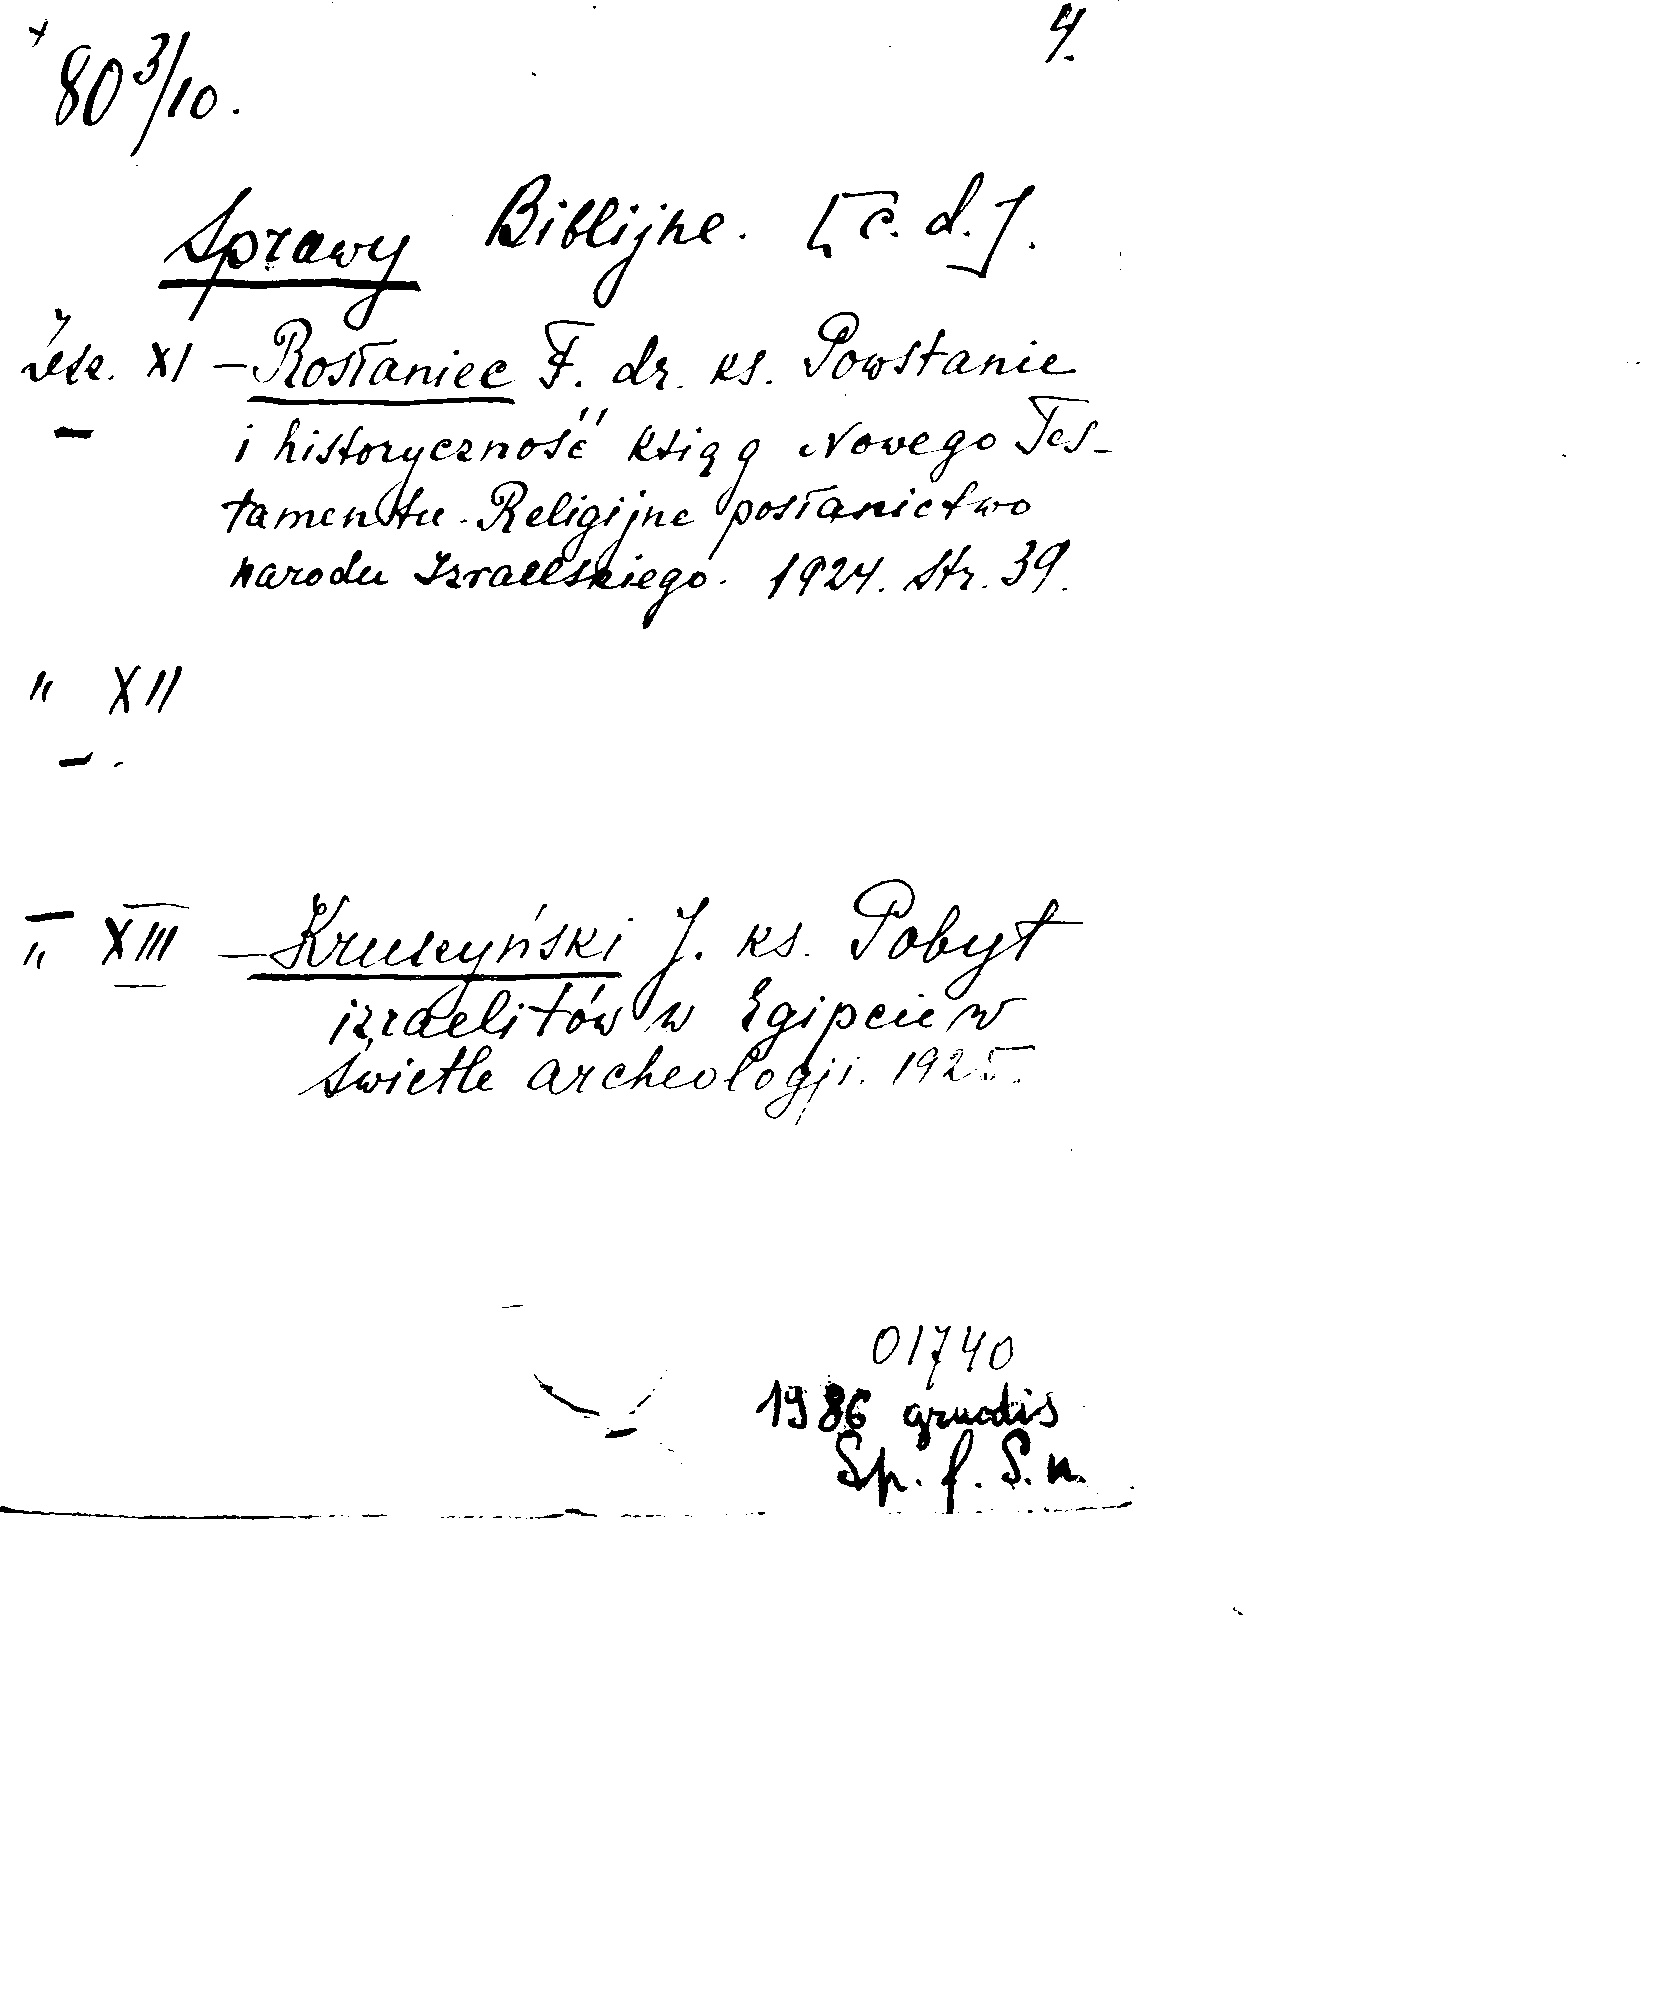 4.
80 3/10.
Sprawy Biblijne. [c. d.].
Zesz. XI – Rosłaniec F. dr. ks. Powstanie
i historyczność ksiąg Nowego Tes-
tamentu. Religijne posłanictwo
narodu Izraelskiego. 1924. Str. 39.
" XII
" XIII – Kruszyński J. ks. Pobyt
izraelitów w Egipcie w
świetle archeologji. 1925.
01740
1986 gruodis
Sp. f. S. n.